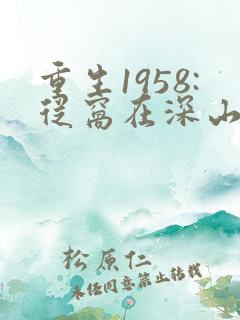 重生1958:
从窝在深山
松原仁
未经同意禁止转载